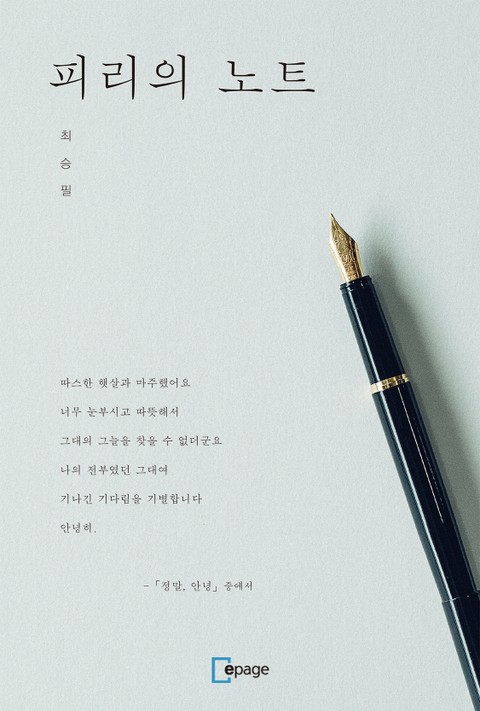 피리의 노트
최
승
필
따스한 햇살과 마주했어요
너무 눈부시고 따뜻해서
그대의 그늘을 찾을 수 없더군요
나의 전부였던 그대여
기나긴 기다림을 기별합니다
안녕히.
-「정말, 안녕」중에서
epage